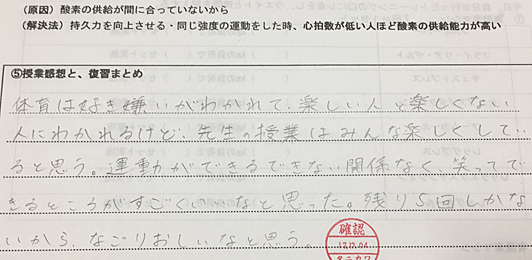 （原因）酸素の供給が間に合っていないから
（解決法）持久力を向上させる・同じ強度の運動をした時、心拍数が低い人ほど酸素の供給能力が高い
⑤授業感想と、復習まとめ
体育は好き嫌いがわかれて、楽しい人と楽しくない
人にわかれるけど、先生の授業はみんな楽しくしてい
ると思う。運動ができるできない関係なく、笑ってで
きるところがすごくいいなと思った。残り5回しかな
いから、なごりおしいなと思う。
確認
17.12.04
タニカワ